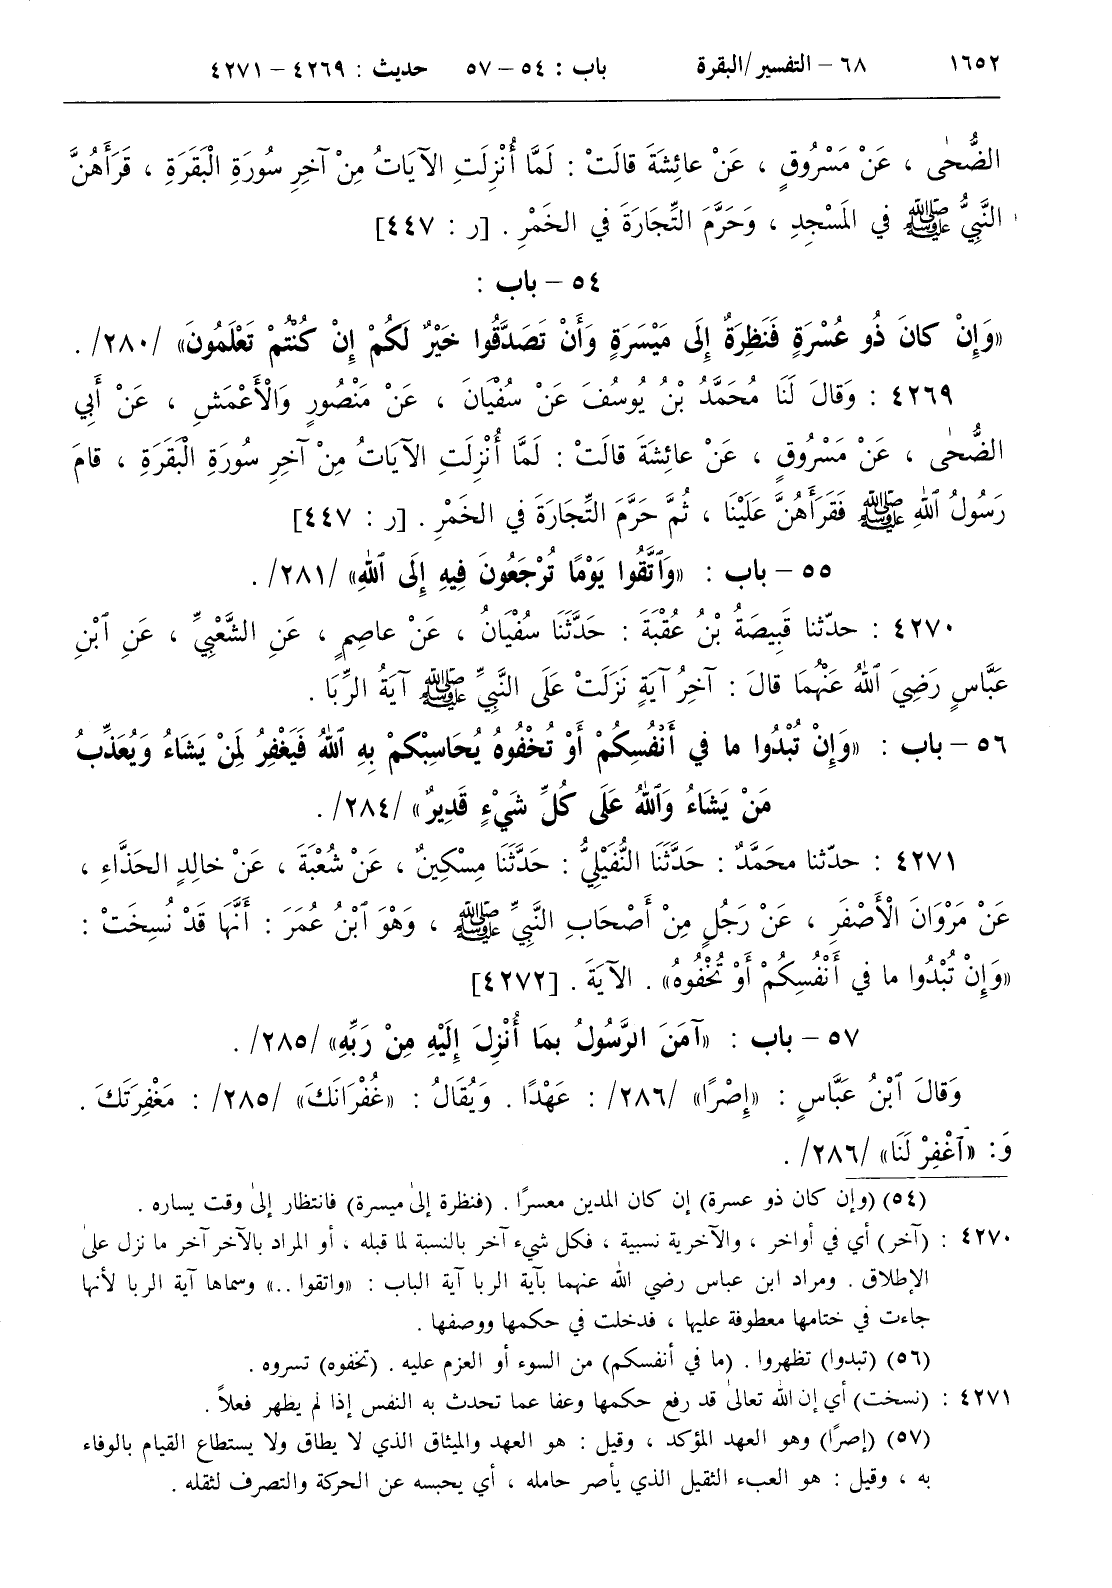 ١٦٥٢ ٦٨ – التفسير/البقرة باب : ٥٤ – ٥٧ حديث : ٤٢٦٩ – ٤٢٧١
الضُّحٰى ، عَنْ مَسْرُوقٍ ، عَنْ عائِشَةَ قالَتْ : لَمَّا أُنْزِلَتِ الآيَاتُ مِنْ آخِرِ سُورَةِ الْبَقَرَةِ ، قَرَأَهُنَّ
النَّبِيُّ ﷺ في المَسْجِدِ ، وَحَرَّمَ التِّجَارَةَ في الخَمْرِ . [ر : ٤٤٧]
٥٤ – باب :
«وَإِنْ كانَ ذُو عُسْرَةٍ فَنَظِرَةٌ إِلَى مَيْسَرَةٍ وَأَنْ تَصَدَّقُوا خَيْرٌ لَكُمْ إِنْ كُنْتُمْ تَعْلَمُونَ» /٢٨٠/ .
٤٢٦٩ : وَقالَ لَنَا مُحَمَّدُ بْنُ يُوسُفَ عَنْ سُفْيَانَ ، عَنْ مَنْصُورٍ وَالْأَعْمَشِ ، عَنْ أَبِي
الضُّحٰى ، عَنْ مَسْرُوقٍ ، عَنْ عائِشَةَ قالَتْ : لَمَّا أُنْزِلَتِ الآيَاتُ مِنْ آخِرِ سُورَةِ الْبَقَرَةِ ، قامَ
رَسُولُ ٱللهِ ﷺ فَقَرَأَهُنَّ عَلَيْنَا ، ثُمَّ حَرَّمَ التِّجَارَةَ في الخَمْرِ . [ر : ٤٤٧]
٥٥ – باب : «وَٱتَّقُوا يَوْمًا تُرْجَعُونَ فِيهِ إِلَى ٱللهِ» /٢٨١/ .
٤٢٧٠ : حدّثنا قَبِيصَةُ بْنُ عُقْبَةَ : حَدَّثَنَا سُفْيَانُ ، عَنْ عاصِمٍ ، عَنِ الشَّعْبِيِّ ، عَنِ ٱبْنِ
عَبَّاسٍ رَضِيَ ٱللهُ عَنْهُمَا قالَ : آخِرُ آيَةٍ نَزَلَتْ عَلَى النَّبِيِّ ﷺ آيَةُ الرِّبَا .
٥٦ – باب : «وَإِنْ تُبْدُوا ما في أَنْفُسِكُمْ أَوْ تُخْفُوهُ يُحَاسِبْكمْ بِهِ ٱللهُ فَيَغْفِرُ لِمَنْ يَشَاءُ وَيُعَذِّبُ
مَنْ يَشَاءُ وَٱللهُ عَلَى كُلِّ شَيْءٍ قَدِيرٌ» /٢٨٤/ .
٤٢٧١ : حدّثنا محَمَّدٌ : حَدَّثَنَا النُّفَيْلِيُّ : حَدَّثَنَا مِسْكِينٌ ، عَنْ شُعْبَةَ ، عَنْ خالِدٍ الحَذَّاءِ ،
عَنْ مَرْوَانَ الْأَصْفَرِ ، عَنْ رَجُلٍ مِنْ أَصْحَابِ النَّبِيِّ ﷺ ، وَهْوَ ٱبْنُ عُمَرَ : أَنَّهَا قَدْ نُسِخَتْ :
«وَإِنْ تُبْدُوا ما في أَنْفُسِكُمْ أَوْ تُخْفُوهُ» . الآيَةَ . [٤٢٧٢]
٥٧ – باب : «آمَنَ الرَّسُولُ بِمَا أُنْزِلَ إِلَيْهِ مِنْ رَبِّهِ» /٢٨٥/ .
وَقالَ ٱبْنُ عَبَّاسٍ : «إِصْرًا» /٢٨٦/ : عَهْدًا . وَيُقَالُ : «غُفْرَانَكَ» /٢٨٥/ : مَغْفِرَتَكَ .
وَ : «ٱغْفِرْ لَنَا» /٢٨٦/ .
(٥٤) (وإن كان ذو عسرة) إن كان المدين معسرًا . (فنظرة إلىٰ ميسرة) فانتظار إلىٰ وقت يساره .
٤٢٧٠ : (آخر) أي في أواخر ، والآخرية نسبية ، فكل شيء آخر بالنسبة لما قبله ، أو المراد بالآخر آخر ما نزل علىٰ
الإطلاق . ومراد ابن عباس رضي الله عنهما بآية الربا آية الباب : «واتقوا ..» وسماها آية الربا لأنها
جاءت في ختامها معطوفة عليها ، فدخلت في حكمها ووصفها .
(٥٦) (تبدوا) تظهروا . (ما في أنفسكم) من السوء أو العزم عليه . (تخفوه) تسروه .
٤٢٧١ : (نسخت) أي إن الله تعالىٰ قد رفع حكمها وعفا عما تحدث به النفس إذا لم يظهر فعلاً .
(٥٧) (إصرًا) وهو العهد المؤكد ، وقيل : هو العهد والميثاق الذي لا يطاق ولا يستطاع القيام بالوفاء
به ، وقيل : هو العبء الثقيل الذي يأصر حامله ، أي يحبسه عن الحركة والتصرف لثقله .